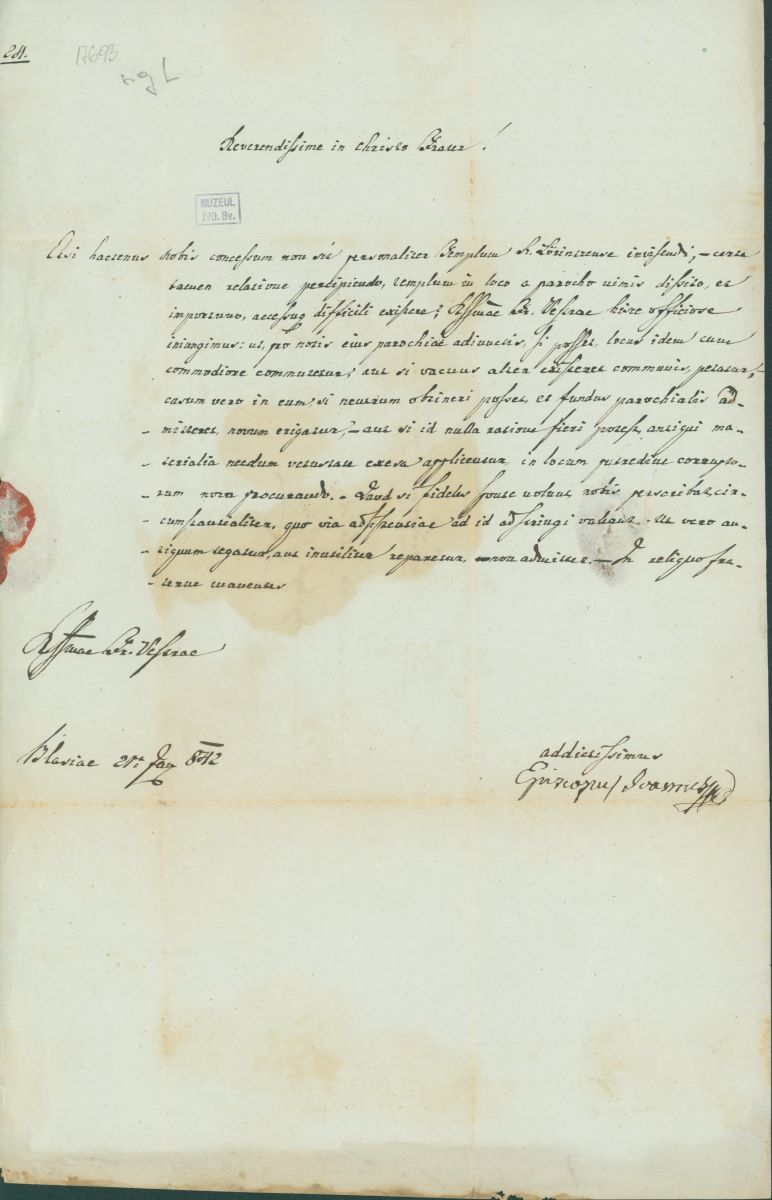 24.
17693
Reverendissime in Christo Frater!
MUZEUL
JUD. Bv.
Etsi hactenus Nobis concessum non sit personaliter Templum Sz. Lörintzense invisendi, – certa
tamen relatione percipiendo, templum in loco a parocho nimis dissito, et
importuno, accessuq difficili existere; Rssmae Fr. Vestrae hisce officiose
iniungimus: ut, pro notis eius parochiae adiunctis, si posset, locus idem cum
commodiore commutetur; aut si vacuus alter existeret communis, petatur,
casum vero in eum, si neutrum obtineri posset, et fundus parochialis ad-
- mitteret, novum erigatur, – aut si id nulla ratione fieri potest, antiqui ma-
- terialia necdum vetustate exesa applicentur, in locum putredine corrupto-
- rum nova procurando. – Quod si fideles sponte nolunt, nobis perscribat cir-
- cumstantialiter, quo via ad id adstringi valeant. Ut vero an-
- tiquum tegatur, aut inutiliter reparetur, non admittet. – In reliquo fra-
- terne manentes
Rssmae Fr. Vestrae
Blasiae 21a Jan 842
addictissimus
Episcopus Joannes